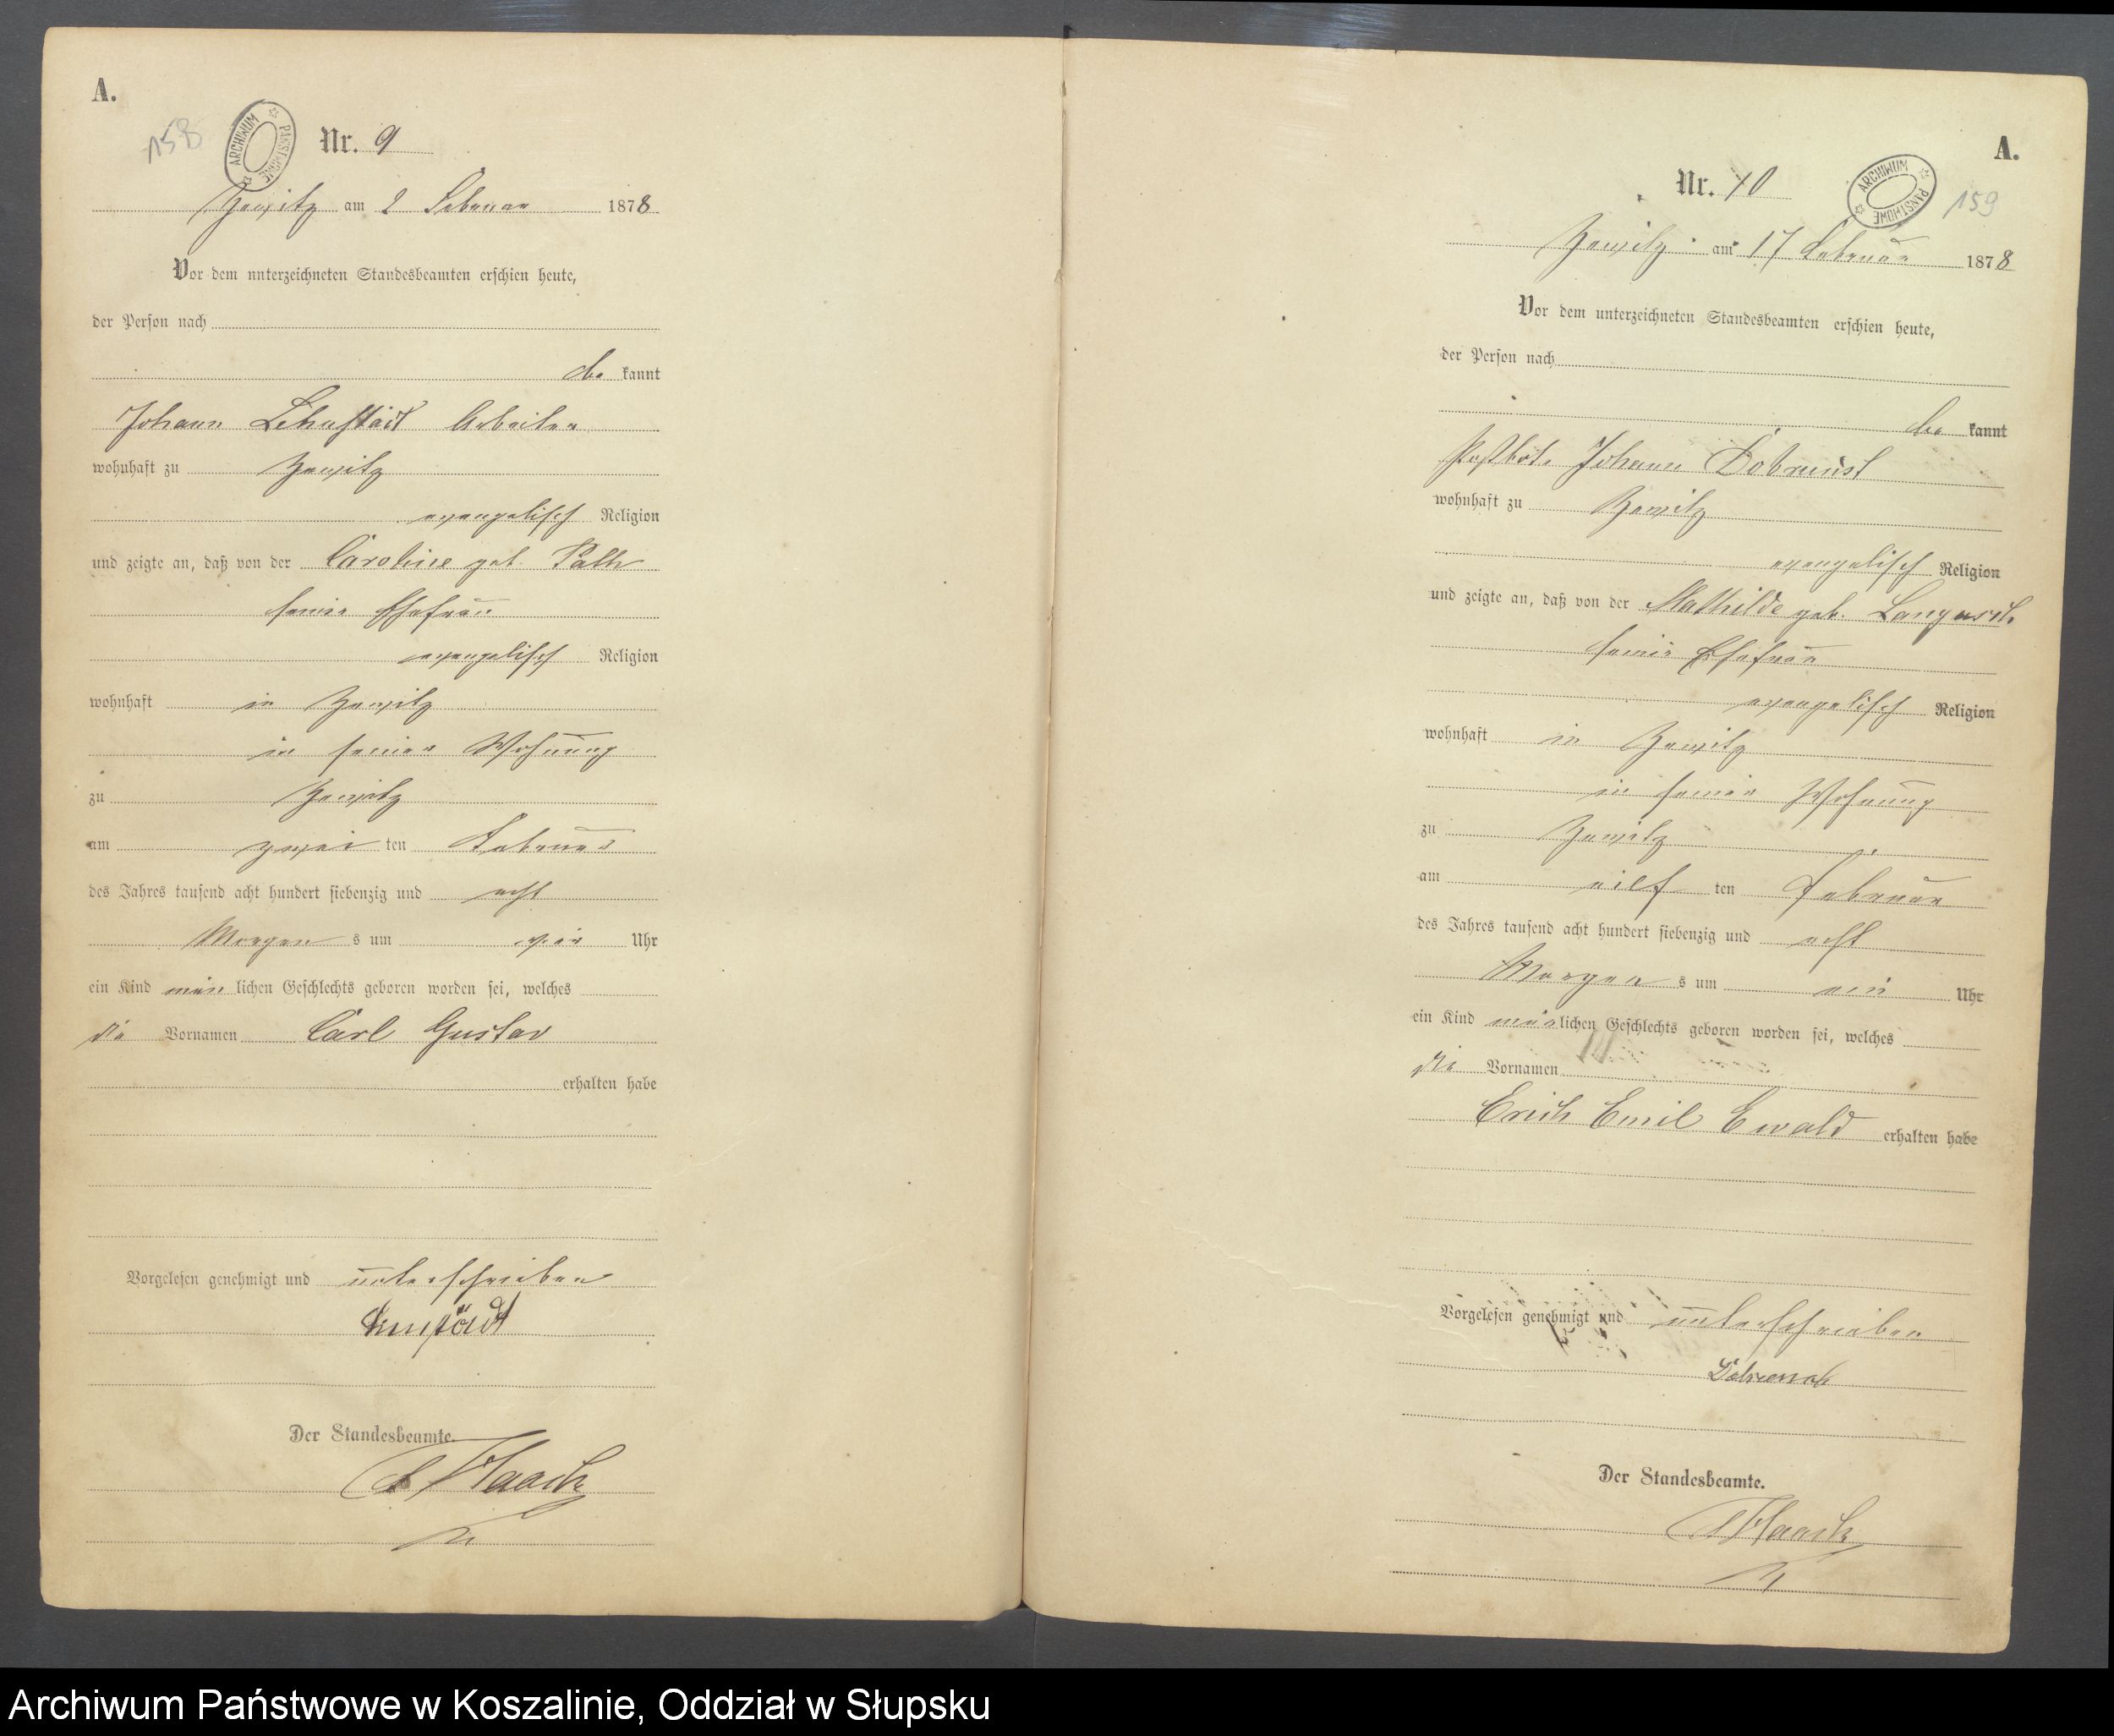 A.
158
ARCHIWUM PAŃSTWOWE
Nr. 9
Zewitz am 2 Februar 1878
Vor dem unterzeichneten Standesbeamten erschien heute,
der Person nach
be kannt
Johann Lehnstädt Arbeiter
wohnhaft zu Zewitz
evangelisch Religion
und zeigte an, daß von der Caroline geb. Path
seiner Ehefrau
evangelisch Religion
wohnhaft in Zewitz
in seiner Wohnung
zu Zewitz
am zwei ten Februar
des Jahres tausend acht hundert siebenzig und acht
Morgen s um vier Uhr
ein Kind män lichen Geschlechts geboren worden sei, welches
die Vornamen Carl Gustav
erhalten habe
Vorgelesen genehmigt und unterschrieben
Der Standesbeamte.
Haack
A.
Nr. 10
ARCHIWUM PAŃSTWOWE
159
Zewitz am 17 Februar 1878
Vor dem unterzeichneten Standesbeamten erschien heute,
der Person nach
be kannt
Postbote Johann Dobrunst
wohnhaft zu Zewitz
evangelisch Religion
und zeigte an, daß von der Mathilde geb.
seiner Ehefrau
evangelisch Religion
wohnhaft in Zewitz
in seiner Wohnung
zu Zewitz
am eilf ten Februar
des Jahres tausend acht hundert siebenzig und acht
Morgen s um ein Uhr
ein Kind män lichen Geschlechts geboren worden sei, welches
die Vornamen
Erich Emil Ewald erhalten habe
Vorgelesen genehmigt und unterschrieben
Der Standesbeamte.
Haack
Archiwum Państwowe w Koszalinie, Oddział w Słupsku